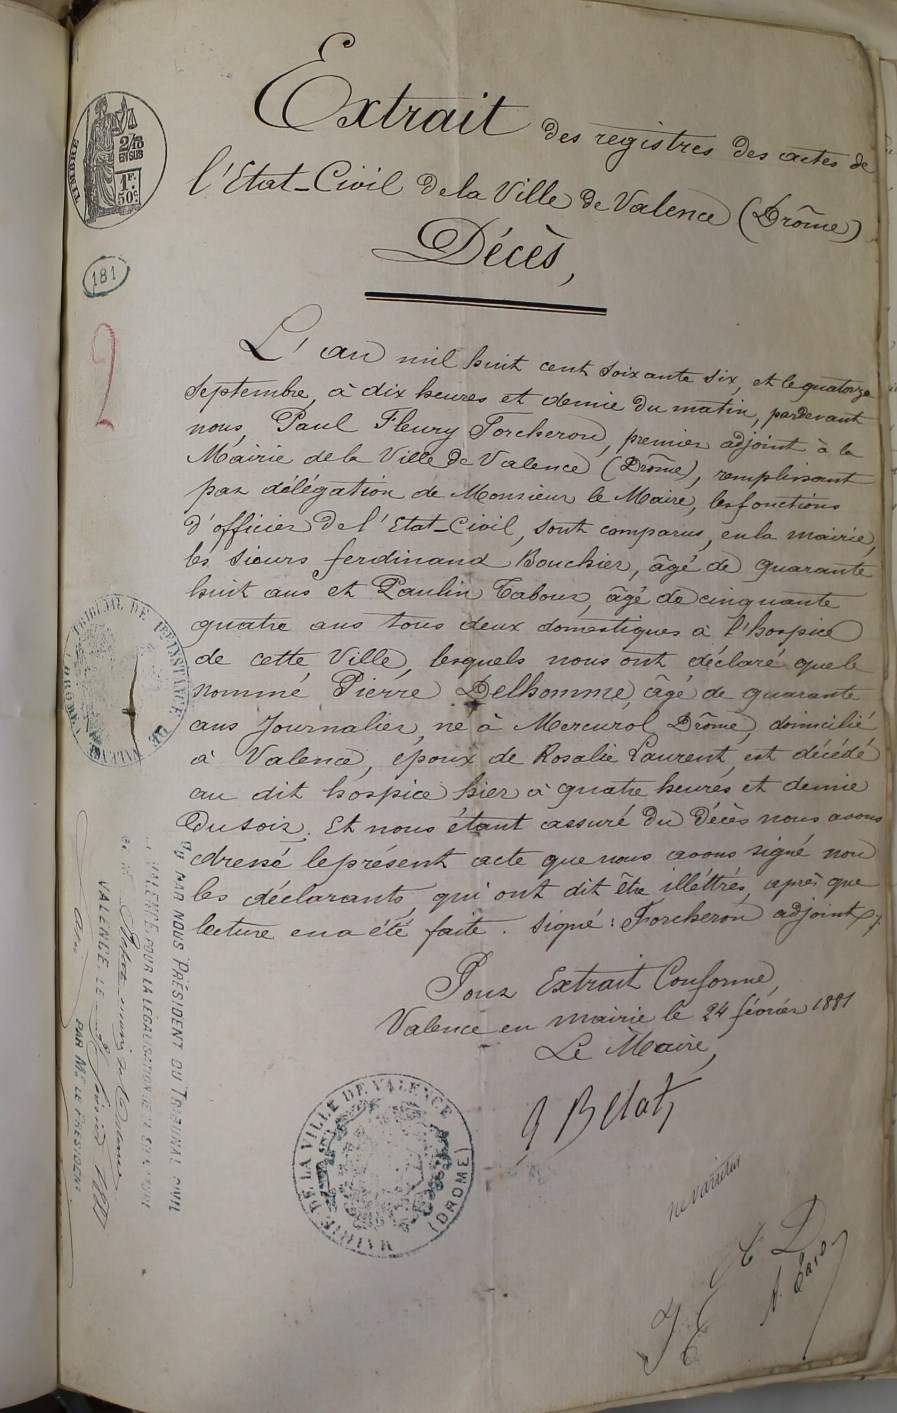 Extrait des registres des actes de
l'Etat-Civil de la Ville de Valence (Drôme)
Décès,
TIMBRE
2/10
EN SUS
1F.
50c
181
L'an mil huit cent soixante six, et le quatorze
septembre, à dix heures et demie du matin, pardevant
nous, Paul Fleury Forcheron, premier adjoint à la
Mairie de la Ville de Valence (Drôme), remplissant
par délégation de Monsieur le Maire, les fonctions
d'officier de l'Etat-Civil, sont comparus, en la mairie,
les sieurs ferdinand Bouchier, âgé de quarante
huit ans et Paulin Cabour, âgé de cinquante
quatre ans tous deux domestiques à l'hospice
de cette Ville, lesquels nous ont déclaré que le
nommé Pierre Delhomme, âgé de quarante
ans Journalier, né à Mercurol Drôme, domicilié
à Valence, époux de Rosalie Laurent, est décédé
au dit hospice hier à quatre heures et demie
du soir. Et nous étant assuré du Décès nous avons
dressé le présent acte que nous avons signé non
les déclarants, qui ont dit être illéttrés, après que
lecture en a été faite. Signé: Forcheron adjoint
Pour Extrait Conforme,
Valence en mairie le 24 février 1881
Le Maire,
MAIRIE DE LA VILLE DE VALENCE
(DROME)
ne varietur
TRIBUNAL DE 1ERE INSTANCE DE
PAR NOUS PRÉSIDENT DU TRIBUNAL CIVIL
VALENCE, POUR LA LÉGALISATION DE LA
VALENCE, LE
PAR Mr LE PRÉSIDENT